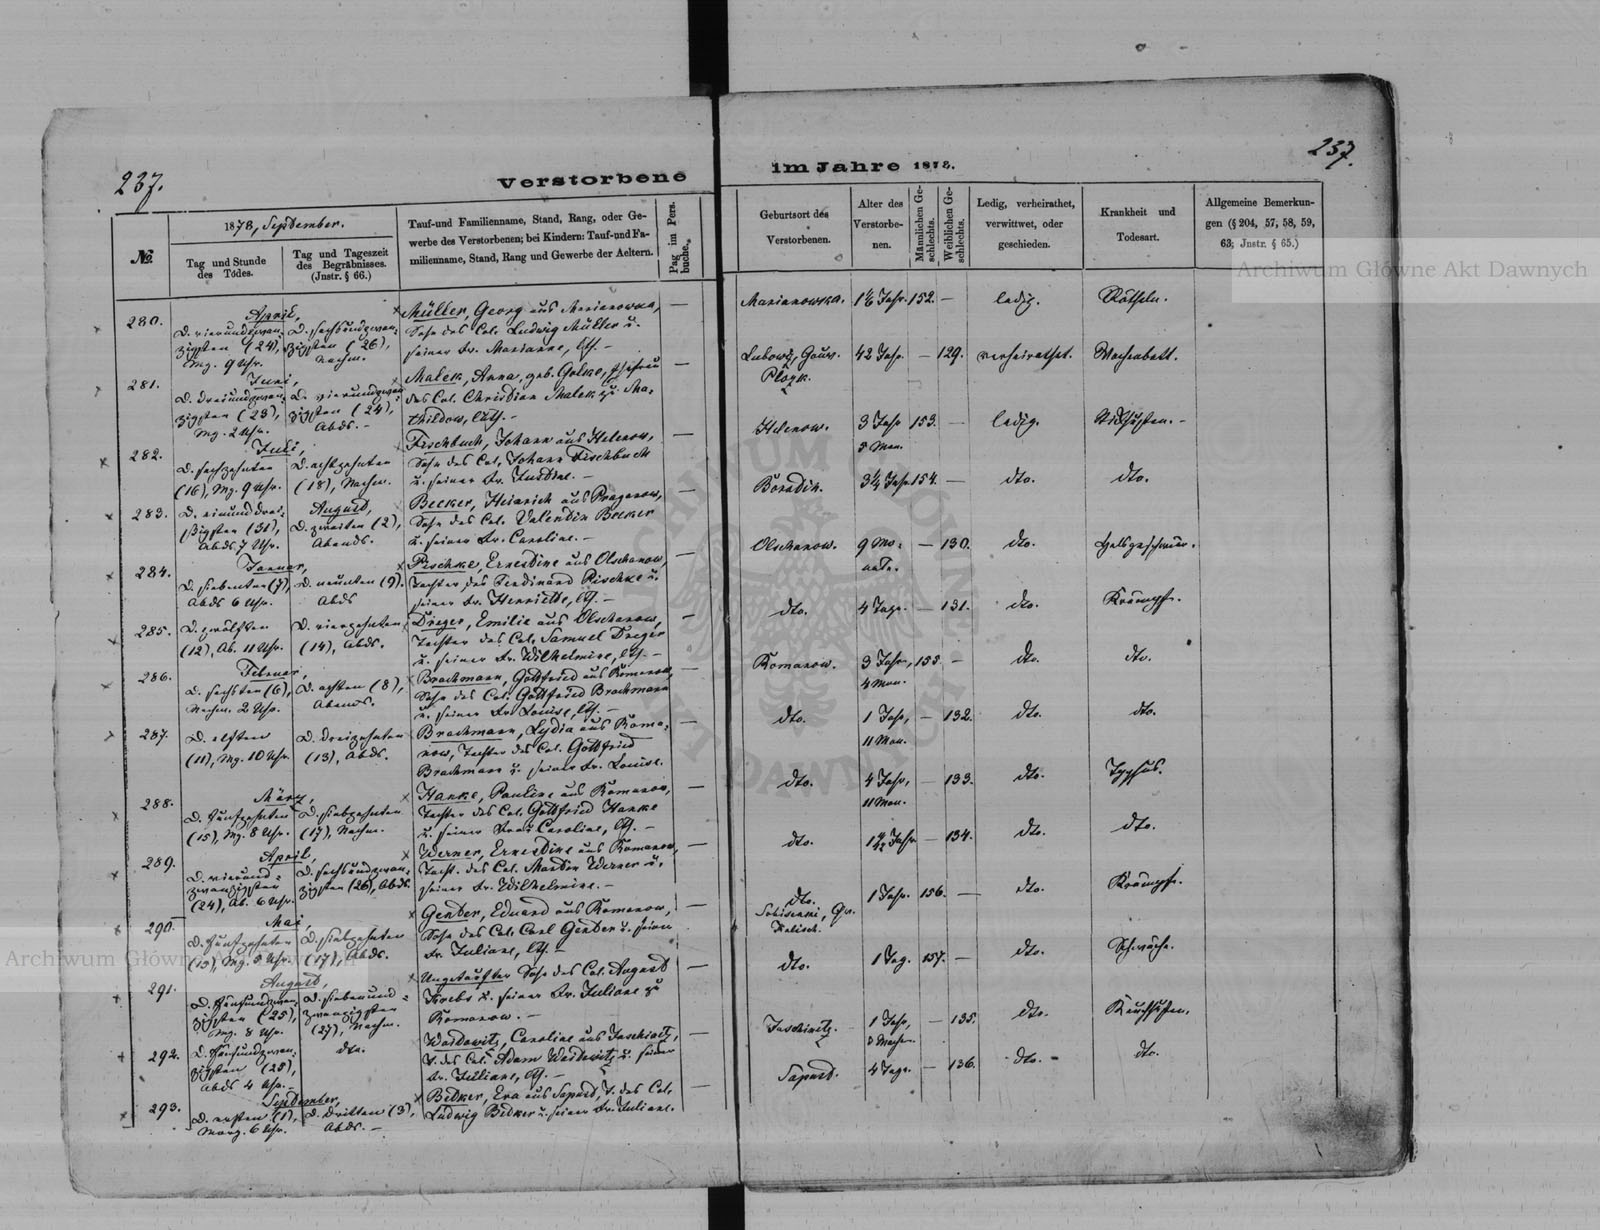 237.
Verstorbene
im Jahre 1878.
237.
№
1878, September.
Tag und Stunde
des Todes.
Tag und Tageszeit
des Begräbnisses.
(Jnstr. § 66.)
Tauf-und Familienname, Stand, Rang, oder Ge-
werbe des Verstorbenen; bei Kindern: Tauf-und Fa-
milienname, Stand, Rang und Gewerbe der Aeltern.
Pag im Pers.
buche.
Geburtsort des
Verstorbenen.
Alter des
Verstorbe-
nen.
Männlichen Ge-
schlechts.
Weiblichen Ge-
schlechts.
Ledig, verheirathet,
verwittwet, oder
geschieden.
Krankheit und
Todesart.
Allgemeine Bemerkun-
gen (§ 204, 57, 58, 59,
63; Jnstr. § 65.)
280.
April,
D. vierundzwan-
zigsten (24),
Mg. 9 Uhr.
D. sechsundzwan-
zigsten (26),
Nachm.
Müller, Georg aus Marianowka,
Sohn des Col. Ludwig Müller u.
seiner Fr. Marianne, lth. –
Marianowka. 1⅙ Jahr. 152. – ledig. Rötheln.
281.
Juni,
D. dreiundzwan-
zigsten (23),
Mg. 2 Uhr.
D. vierundzwan-
zigsten (24),
Abds. –
Malek, Anna, geb. Golke, Ehefrau
des Col. Christian Malek zu Ma-
thildow, lth. –
Lubowz, Gouv.
Plozk.
42 Jahr. – 129. verheirathet. Wochenbett.
282.
Juli,
D. sechzehnten
(16), Mg. 9 Uhr.
D. achtzehnten
(18), Nachm.
Fischbuch, Johann aus Helenow,
Sohn des Col. Johann Fischbuch
u. seiner Fr. Justine. –
Helenow. 3 Jahr 153. – ledig. Stickhusten. –
283.
D. einund drei-
ßigsten (31),
Abds. 7 Uhr.
August,
D. zweiten (2),
Abends.
Becker, Heinrich aus Pragerow,
Sohn des Col. Valentin Becker
u. seiner Fr. Caroline. –
Borodin. 3¼ Jahr 154. – dto. dto.
284.
Januar,
D. siebenten (7),
Abds 6 Uhr.
D. neunten (9).
Abds
Pischke, Ernestine aus Olschanow,
Tochter des Ferdinand Pischke u.
seiner Fr. Henriette, lth. –
Olschanow. 9 Mo-
nate.
– 130. dto. Halsgeschwür.
285.
D. zwölften
(12), Ab. 11 Uhr.
D. vierzehnten
(14), Abds.
Dreger, Emilie aus Olschanow,
Tochter des Col. Samuel Dreger
u. seiner Fr. Wilhelmine, lth. –
dto. 4 Tage. – 131. dto. Krämpfe.
286.
Februar,
D. sechsten (6),
Nachm. 2 Uhr.
D. achten (8),
Abends.
Brachmann, Gottfried aus Romanow,
Sohn des Col. Gottfried Brachmann
u. seiner Fr. Louise, lth. –
Romanow. 3 Jahr, 155. – dto. dto.
4 Mon.
287.
D. elften
(11), Mg. 10 Uhr.
D. dreizehnten
(13), Abds.
Brachmann, Lydia aus Roma-
now, Tochter des Col. Gottfried
Brachmann u. seiner Fr. Louise.
dto. 1 Jahr, – 132. dto. dto.
11 Mon.
288.
März,
D. fünfzehnten
(15), Mg. 8 Uhr.
D. siebzehnten
(17), Nachm.
Hanke, Pauline aus Romanow,
Tochter des Col. Gottfried Hanke
u. seiner Frau Caroline, lth. –
dto. 4 Jahr, – 133. dto. Typhus.
11 Mon.
289.
April,
D. vierund-
zwanzigsten
(24), Ab. 6 Uhr.
D. sechsundzwan-
zigsten (26), Abds.
Werner, Ernestine aus Romanow,
Tocht. des Col. Martin Werner u.
seiner Fr. Wilhelmine. –
dto. – 134. dto. dto.
290.
Mai,
D. fünfzehnten
(15), Mg. 5 Uhr.
D. siebzehnten
(17), Abds.
Genter, Eduard aus Romanow,
Sohn des Col. Carl Genter u. seiner
Fr. Juliane, lth. –
dto.
Kalisch.
1 Jahr. 156. – dto. Krämpfe.
291.
August,
D. fünfundzwan-
zigsten (25),
Mg. 8 Uhr.
D. siebenund-
zwanzigsten
(27), Nachm.
Ungetaufter Sohn des Col. August
Krebs u. seiner Fr. Juliane zu
Romanow. –
dto. 1 Tag. 157. – dto. Schwäche.
292.
D. fünfundzwan-
zigsten (25),
Abds 4 Uhr. –
dto.
Waidewitz, Caroline aus Jaschinitz,
T. des Col. Adam Waidewitz u. seiner
Fr. Juliane, lth. –
Jaschinitz. 1 Jahr, – 135. dto. Keuchhusten.
293.
September,
D. ersten (1),
Morg. 6 Uhr.
D. dritten (3),
Abds. –
Betker, Eva aus Sapust, T. des Col.
Ludwig Betker u. seiner Fr. Juliane.
Sapust. 4 Tage. – 136. dto. dto.
Archiwum Główne Akt Dawnych
Archiwum Główne Akt Dawnych
ARCHIWUM GŁÓWNE AKT DAWNYCH